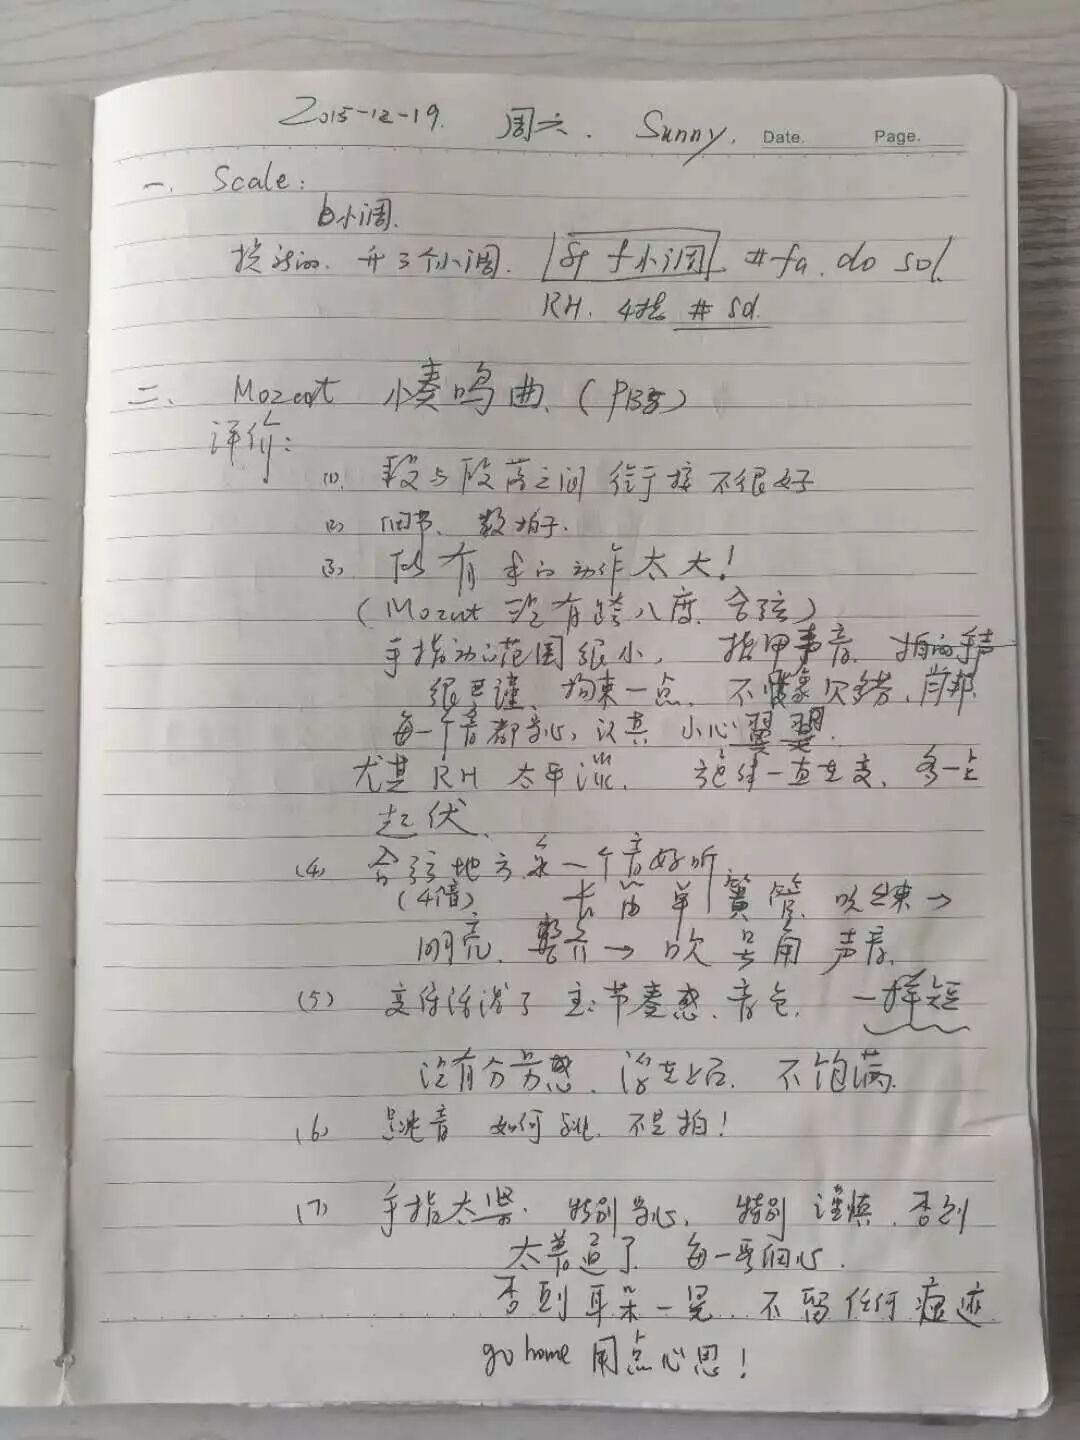 2015-12-19. 周六. Sunny. Date. Page.
一. Scale:
b小调.
换新的. 升3个小调. 升f小调 #fa. do sol.
RH. 4指 # sol.
二. Mozart 奏鸣曲. (P135)
评价:
(1). 段与段落之间 衔接 不很好
(2) 细节、数拍子.
(3). 所有 手的动作太大!
(Mozart 没有跨八度、合弦)
手指动的范围很小, 指甲声音. 拍的声
很严谨、拘束一点. 不像贝多芬、肖邦.
每一个音都当心, 认真 小心翼翼.
尤其 RH 太平淡, 旋律一直在变, 多一点
起伏、
(4) 合弦地方 第一个音好听.
(4倍) 长笛 单簧管 吹结束→
明亮、整齐→吹号角 声音.
(5) 变得活泼了 主: 节奏感、音色. 一样短
没有分量感、没 不饱满.
(6) 跳音 如何跳、不是拍!
(7) 手指太紧. 特别当心, 特别 谨慎. 否则
太普通了. 每一音 细心.
否则耳朵一晃. 不留任何痕迹
go home 用点心思!